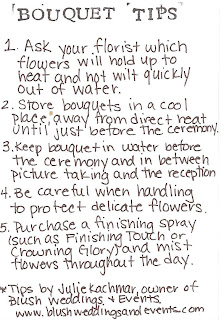 BOUQUET TIPS
1. Ask your florist which
flowers will hold up to
heat and not wilt quickly
out of water.
2. Store bouquets in a cool
place, away from direct heat
until just before the ceremony.
3. Keep bouquet in water before
the ceremony and in between
picture taking and the reception
4. Be careful when handling
to protect delicate flowers.
5. Purchase a finishing spray
(such as Finishing Touch or
Crowning Glory) and mist
flowers throughout the day.
*Tips by Julie Kachmar, owner of
Blush Weddings & Events.
www.blushweddingsandevents.com